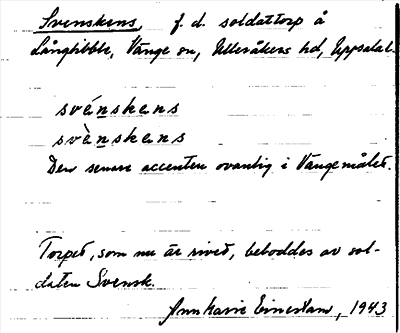 Svenskens, f. d. soldattorp å
Långtibble, Vänge sn, Ulleråkers hd, Uppsala l.
svénskens
svènskens
Den senare accenten ovanlig i Vängemålet.
Torpet, som nu är rivet, beboddes av sol-
daten Svensk.
Ann Karin, 1943